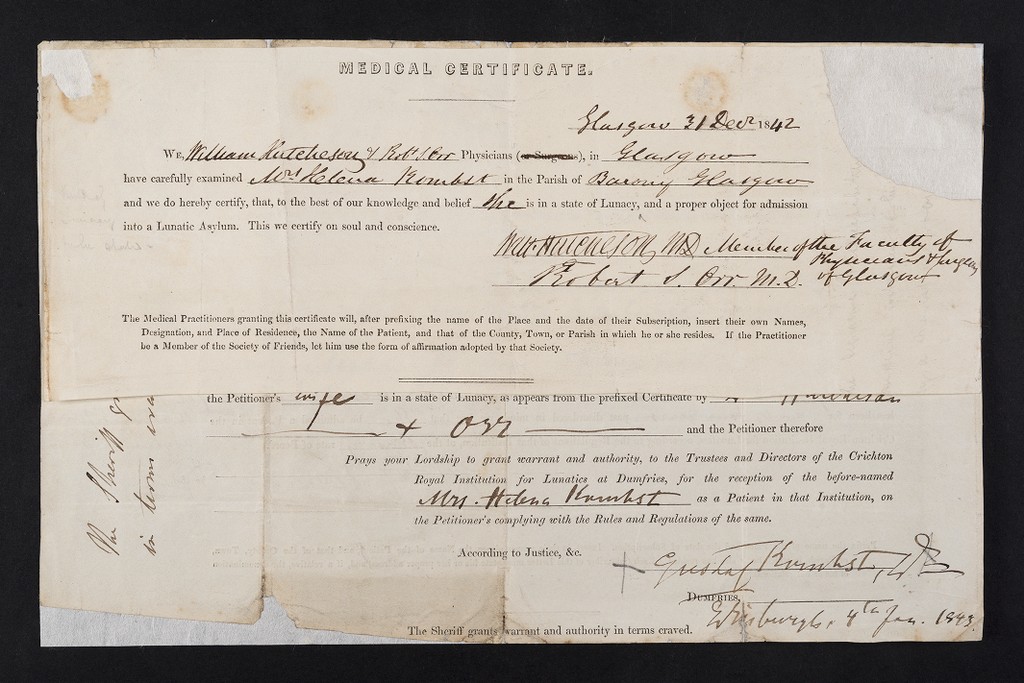 MEDICAL CERTIFICATE.
Glasgow 31 Decr 1842
WE, William Hutcheson & Robt S Orr Physicians (or Surgeons), in Glasgow
have carefully examined Mrs Helena Kombst in the Parish of Barony Glasgow
and we do hereby certify, that, to the best of our knowledge and belief she is in a state of Lunacy, and a proper object for admission
into a Lunatic Asylum. This we certify on soul and conscience.
Willm Hutcheson, MD Member of the Faculty of
Physicians & Surgeons
Robert S. Orr M.D. of Glasgow
The Medical Practitioners granting this certificate will, after prefixing the name of the Place and the date of their Subscription, insert their own Names,
Designation, and Place of Residence, the Name of the Patient, and that of the County, Town, or Parish in which he or she resides. If the Practitioner
be a Member of the Society of Friends, let him use the form of affirmation adopted by that Society.
the Petitioner's wife is in a state of Lunacy, as appears from the prefixed Certificate by Hutcheson
+ Orr and the Petitioner therefore
Prays your Lordship to grant warrant and authority, to the Trustees and Directors of the Crichton
Royal Institution for Lunatics at Dumfries, for the reception of the before-named
Mrs. Helena Kombst as a Patient in that Institution, on
the Petitioner's complying with the Rules and Regulations of the same.
According to Justice, &c.
Gustaf Kombst,
DUMFRIES,
Edinburgh, 4th Jan. 1843.
The Sheriff grants warrant and authority in terms craved.
The Sheriff
in terms